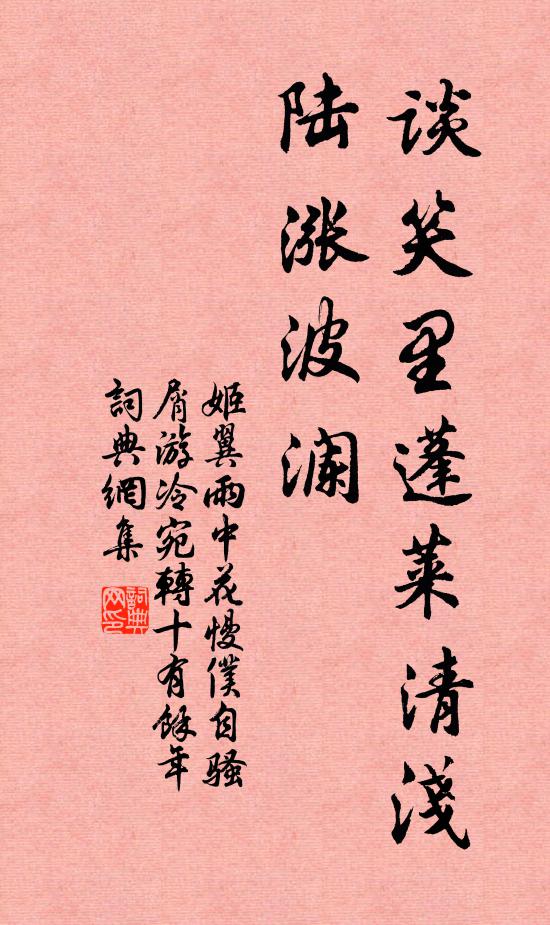 谈笑里蓬莱清浅
陆涨波澜
姬翼雨中花慢仆自骚
屑游冷宛轉十有餘年
詞典網集
詞典网印